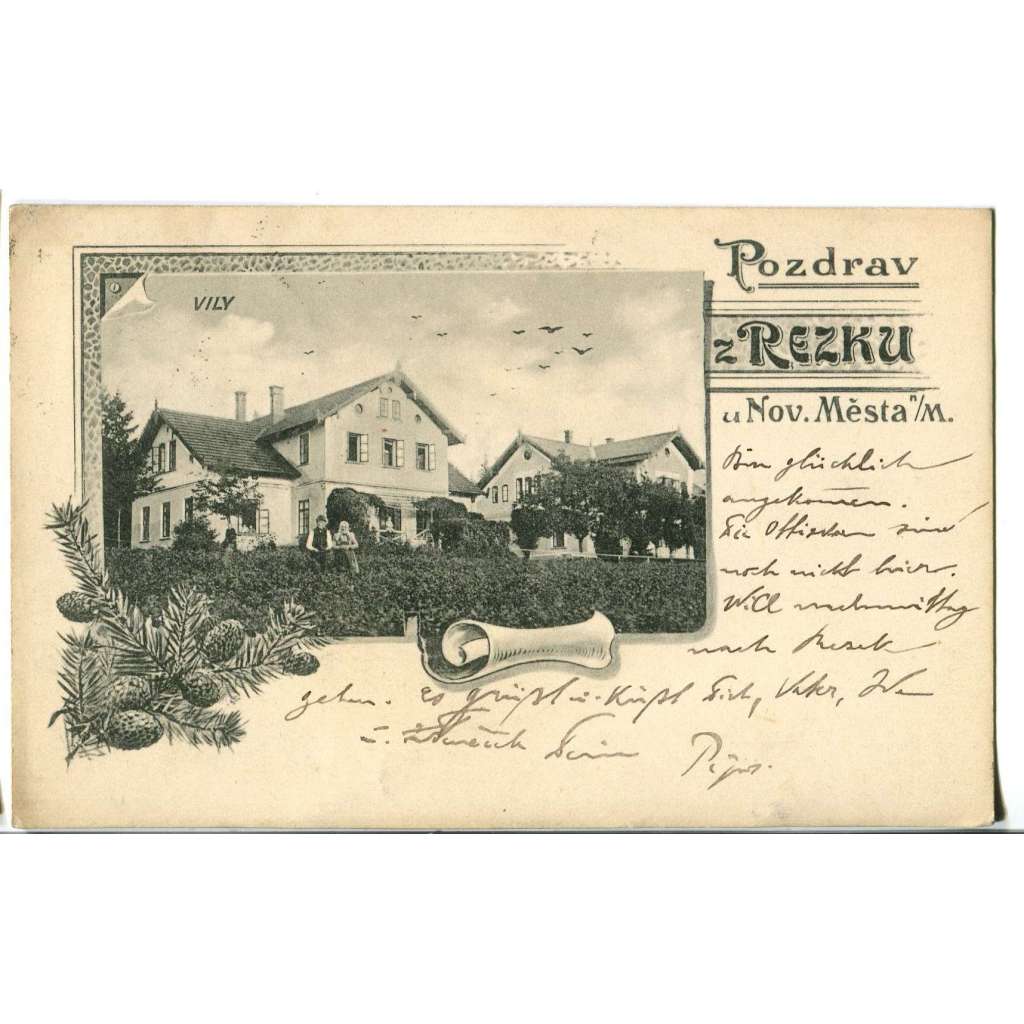 VILY
Pozdrav
z REZKU
u Nov. Města n/M.
Bin glücklich
angekommen.
Die sind
noch nicht hier.
Will nachmittag
nach Rezek
gehen. Es grüßt u. küßt Dich, Vater,
u. Dein